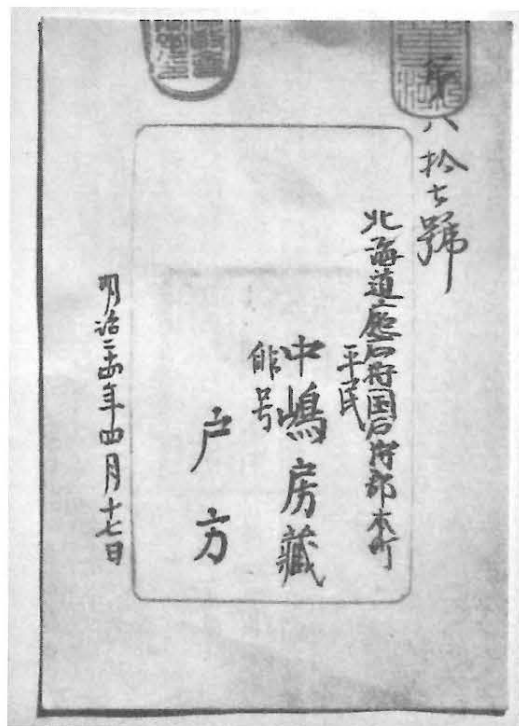 第八拾七號
北海道廳石狩国石狩郡本町
平民
中嶋房藏
俳号
戸方
明治二十四年四月十七日